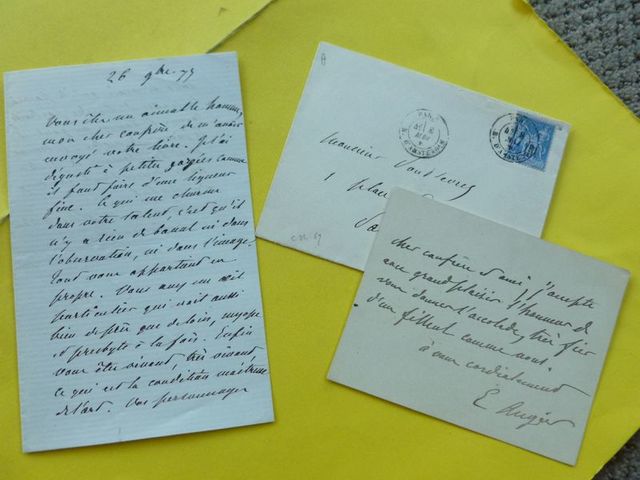 26 9bre 77
Vous êtes un aimable homme,
mon cher confrère de m'avoir
envoyé votre livre. Je l'ai
dégusté à petites gorgées comme
il faut faire d'une liqueur
fine. Ce qui me charme
dans votre talent, c'est qu'il
n'y a rien de banal ni dans
l'observation, ni dans l'image.
Tout vous appartient en
propre. Vous avez un œil
particulier qui voit aussi
bien de près que de loin, myope
et presbyte à la fois. Enfin
vous être vivant, très vivant,
ce qui est la condition maîtresse
de l'art. Vos personnages
PARIS
Monsieur
1 place
cher confrère et ami, j'accepte
avec grand plaisir l'honneur de
vous donner l'accolade, très fier
d'un filleul comme vous.
à vous cordialement
E. Augier